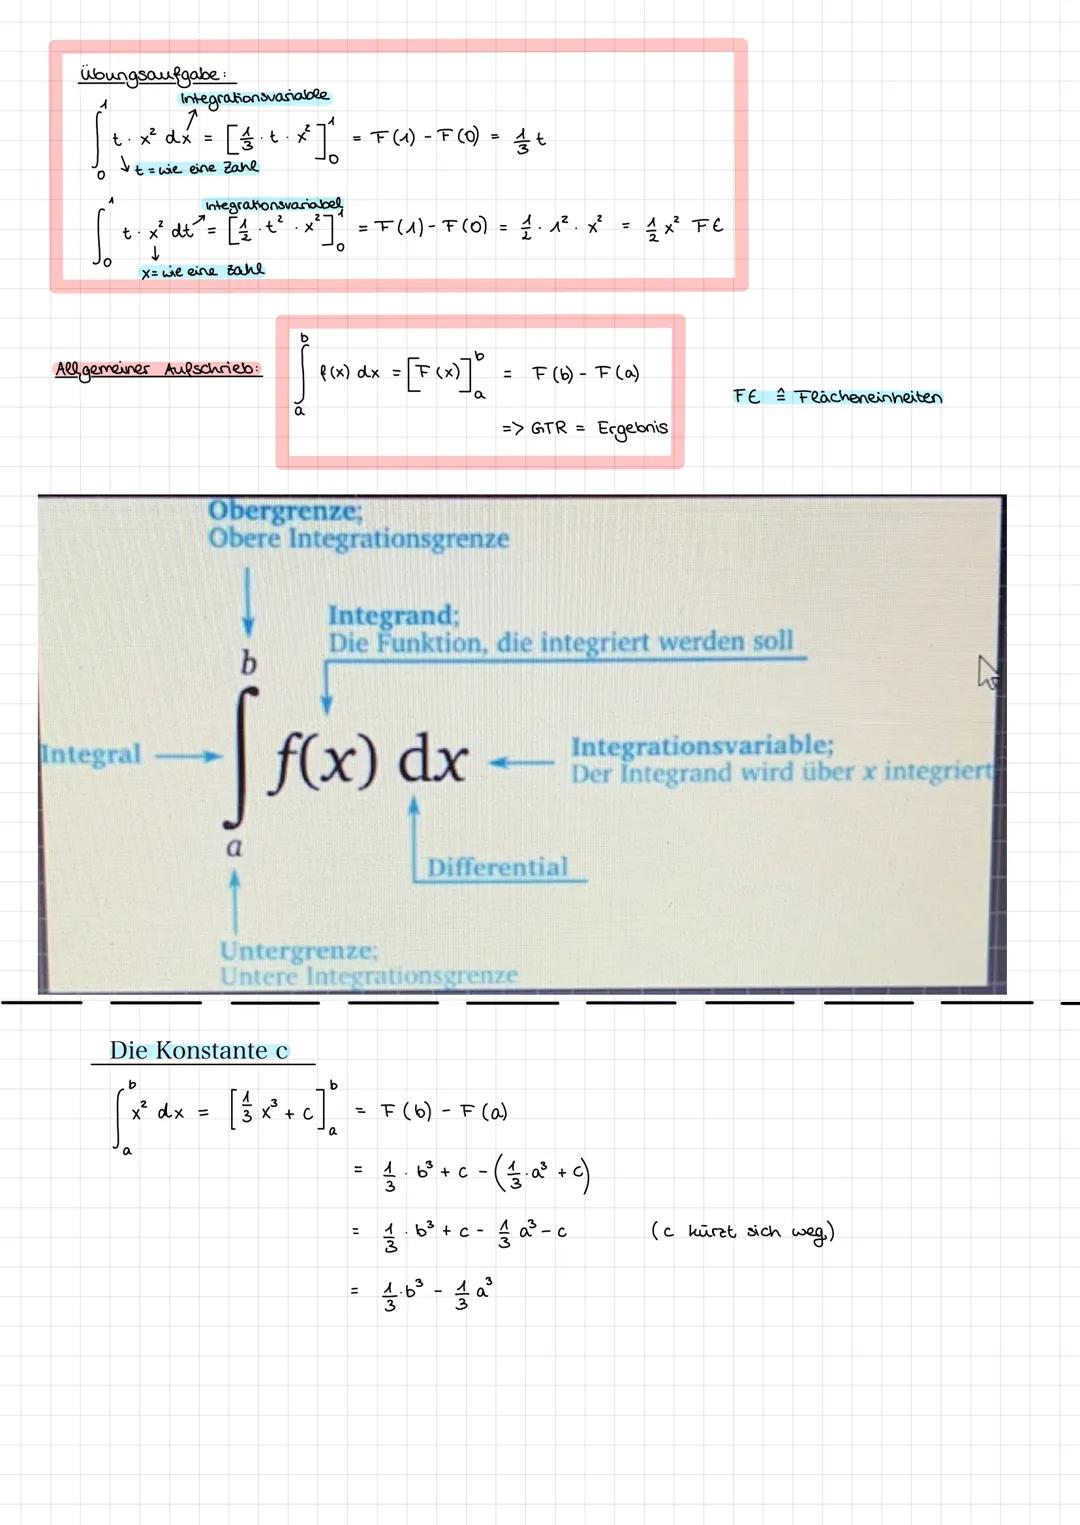 Übungsaufgabe:
Integrationsvariable
∫₀¹ t · x² dx = [1/3 · t · x²]₀¹ = F(1) - F(0) = 1/3 t
t = wie eine Zahl
Integrationsvariabel
∫₀¹ t · x² dt = [1/2 · t² · x²]₀¹ = F(1) - F(0) = 1/2 · 1² · x² = 1/2 x² FE
x = wie eine Zahl
Allgemeiner Aufschrieb:
∫ₐᵇ f(x) dx = [F(x)]ₐᵇ = F(b) - F(a)
FE ≙ Flächeneinheiten
=> GTR = Ergebnis
Obergrenze;
Obere Integrationsgrenze
Integrand;
Die Funktion, die integriert werden soll
b
Integral
∫ f(x) dx
Integrationsvariable;
Der Integrand wird über x integriert
a
Differential
Untergrenze;
Untere Integrationsgrenze
Die Konstante c
∫ₐᵇ x² dx = [1/3 x³ + c]ₐᵇ = F(b) - F(a)
= 1/3 · b³ + c - (1/3 · a³ + c)
= 1/3 · b³ + c - 1/3 a³ - c (c kürzt sich weg)
= 1/3 · b³ - 1/3 a³